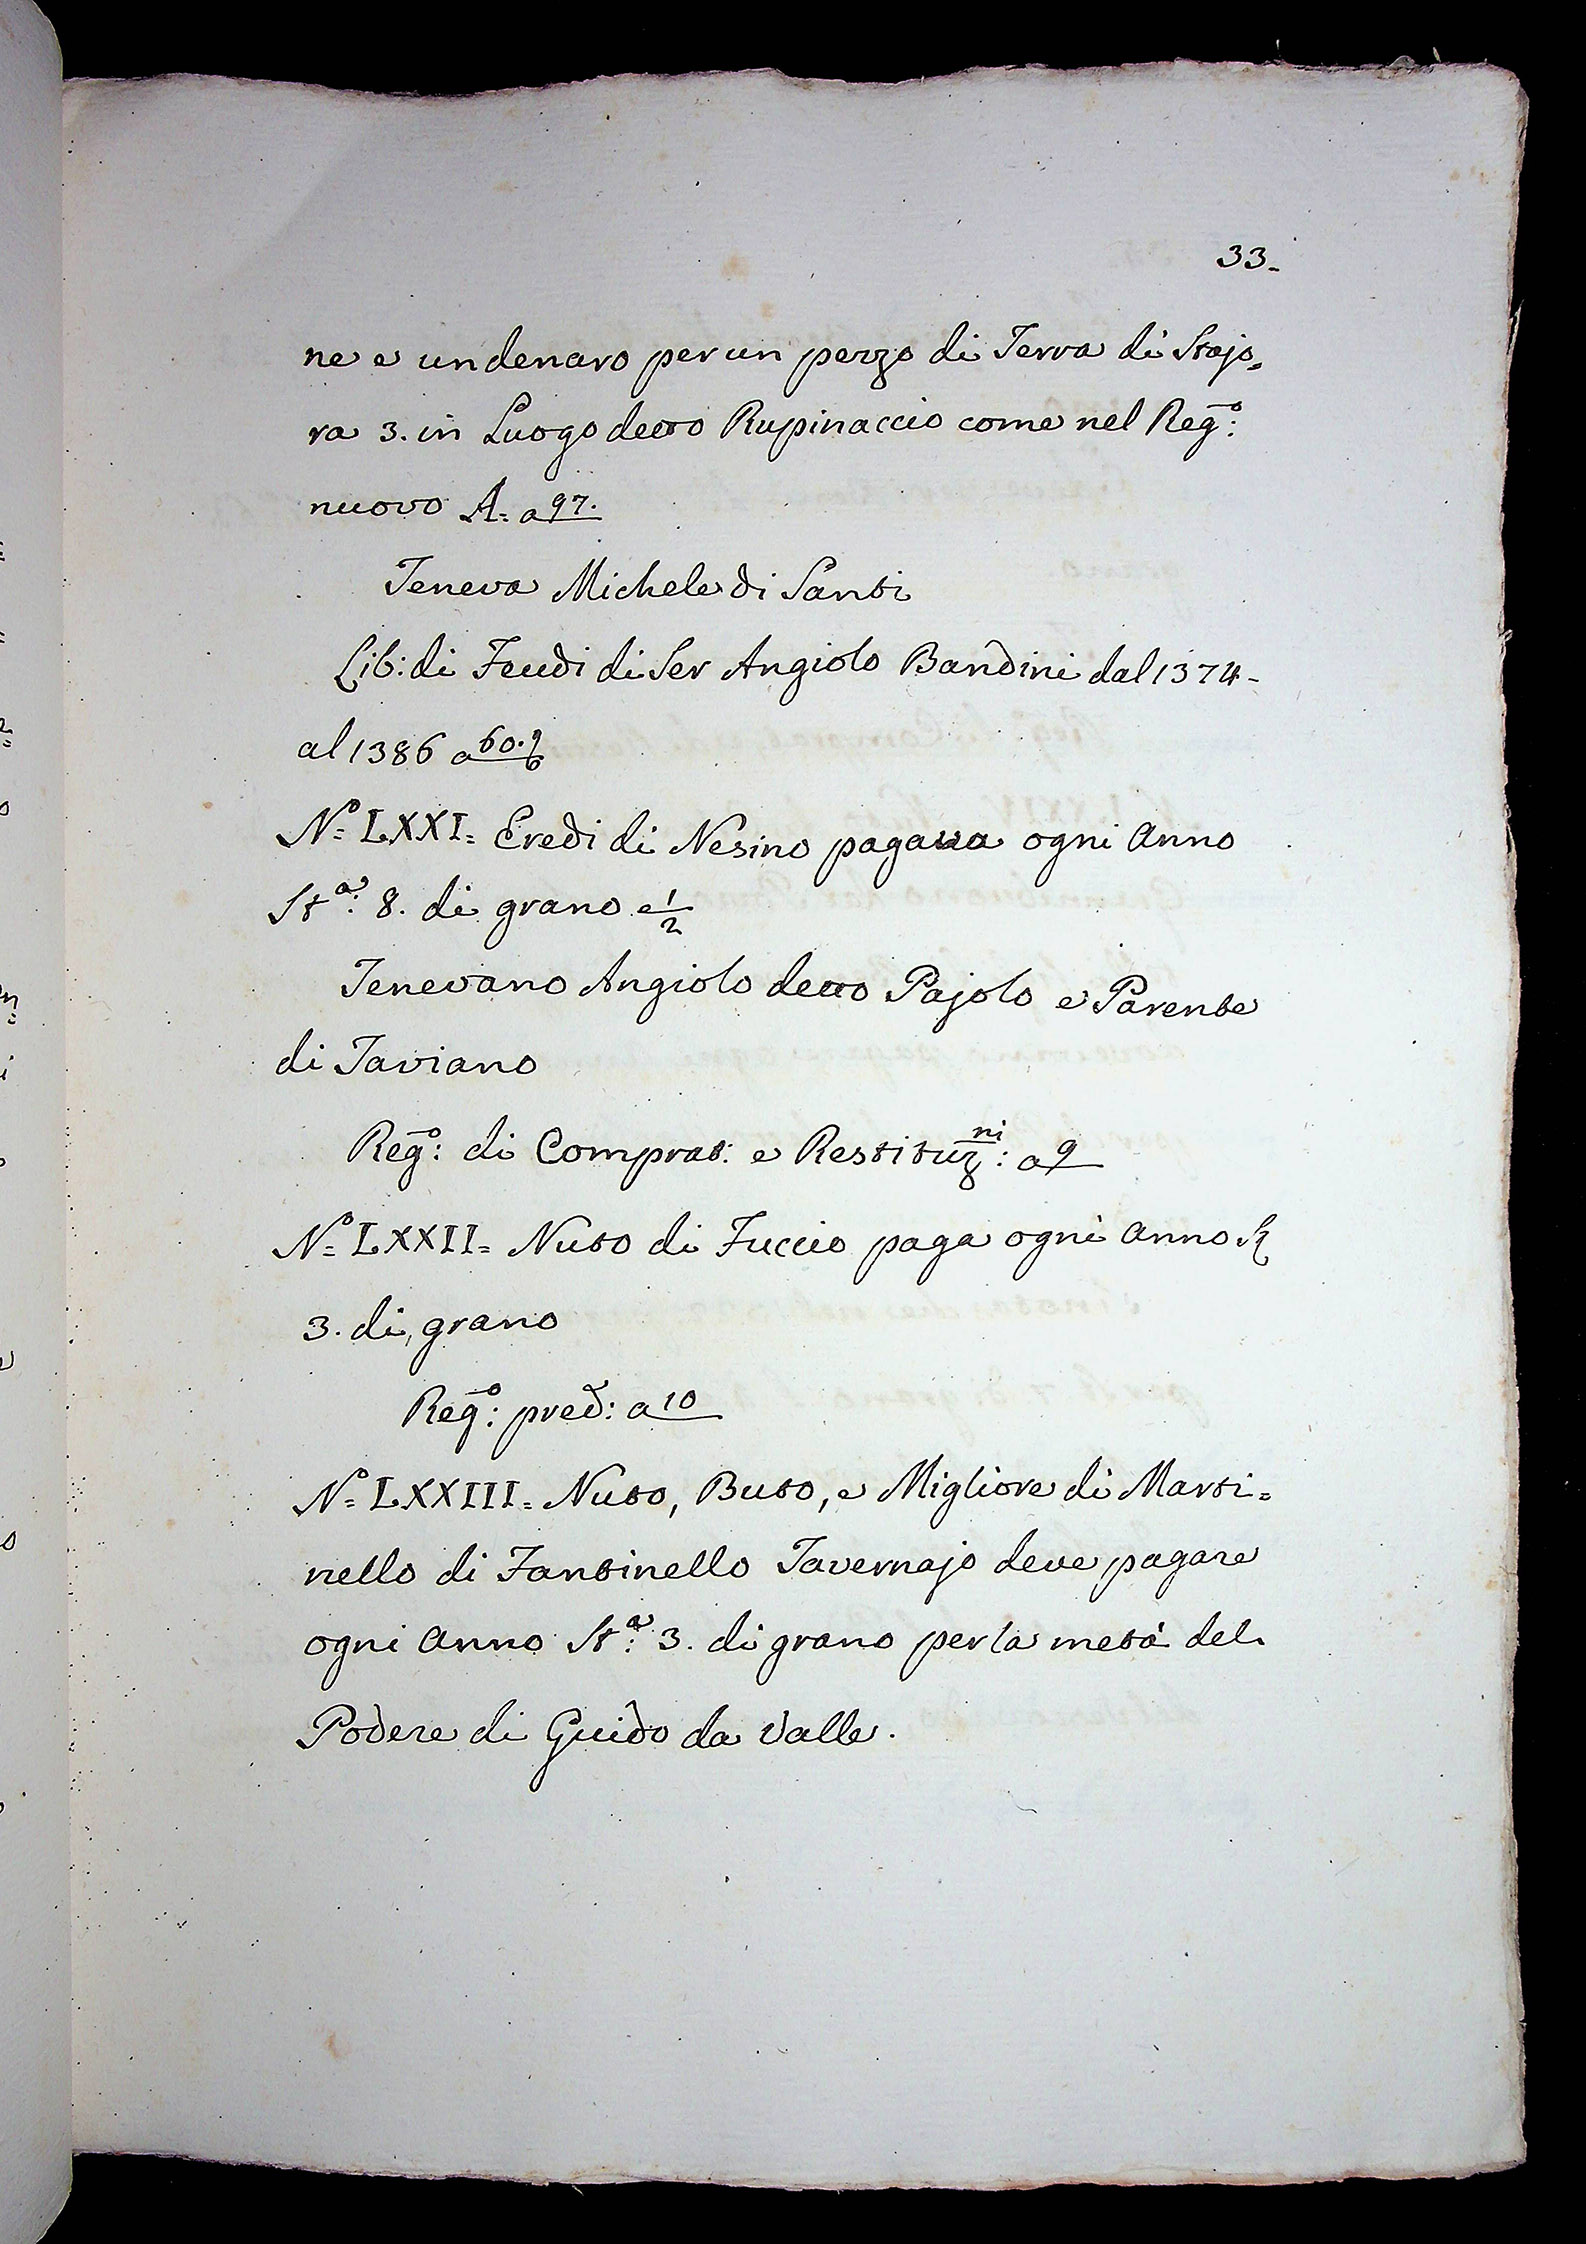 33.
ne e un denaro per un pezzo di Terra di Stajo=
ra 3. in Luogo detto Rupinaccio come nel Reg.º:
nuovo A= a 97.
Teneva Michele di Santi
Lib: di Feudi di Ser Angiolo Bandini dal 1374-
al 1386 a 60. 9/6
Nº= LXXI= Eredi di Nesino pagava ogni Anno
Stª: 8. di grano e 1/2
Tenevano Angiolo detto Pajolo e Parente
di Taviano
Regº: di Comprat: e Restituzni: a 9
Nº= LXXII= Nuto di Fuccio paga ogni anno St
3. di grano
Regº: pred: a 10
Nº= LXXIII= Nuto, Buto, e Migliore di Marti=
nello di Fantinello Tavernajo deve pagare
ogni Anno Stª: 3. di grano per la metà del
Podere di Guido da Valle.